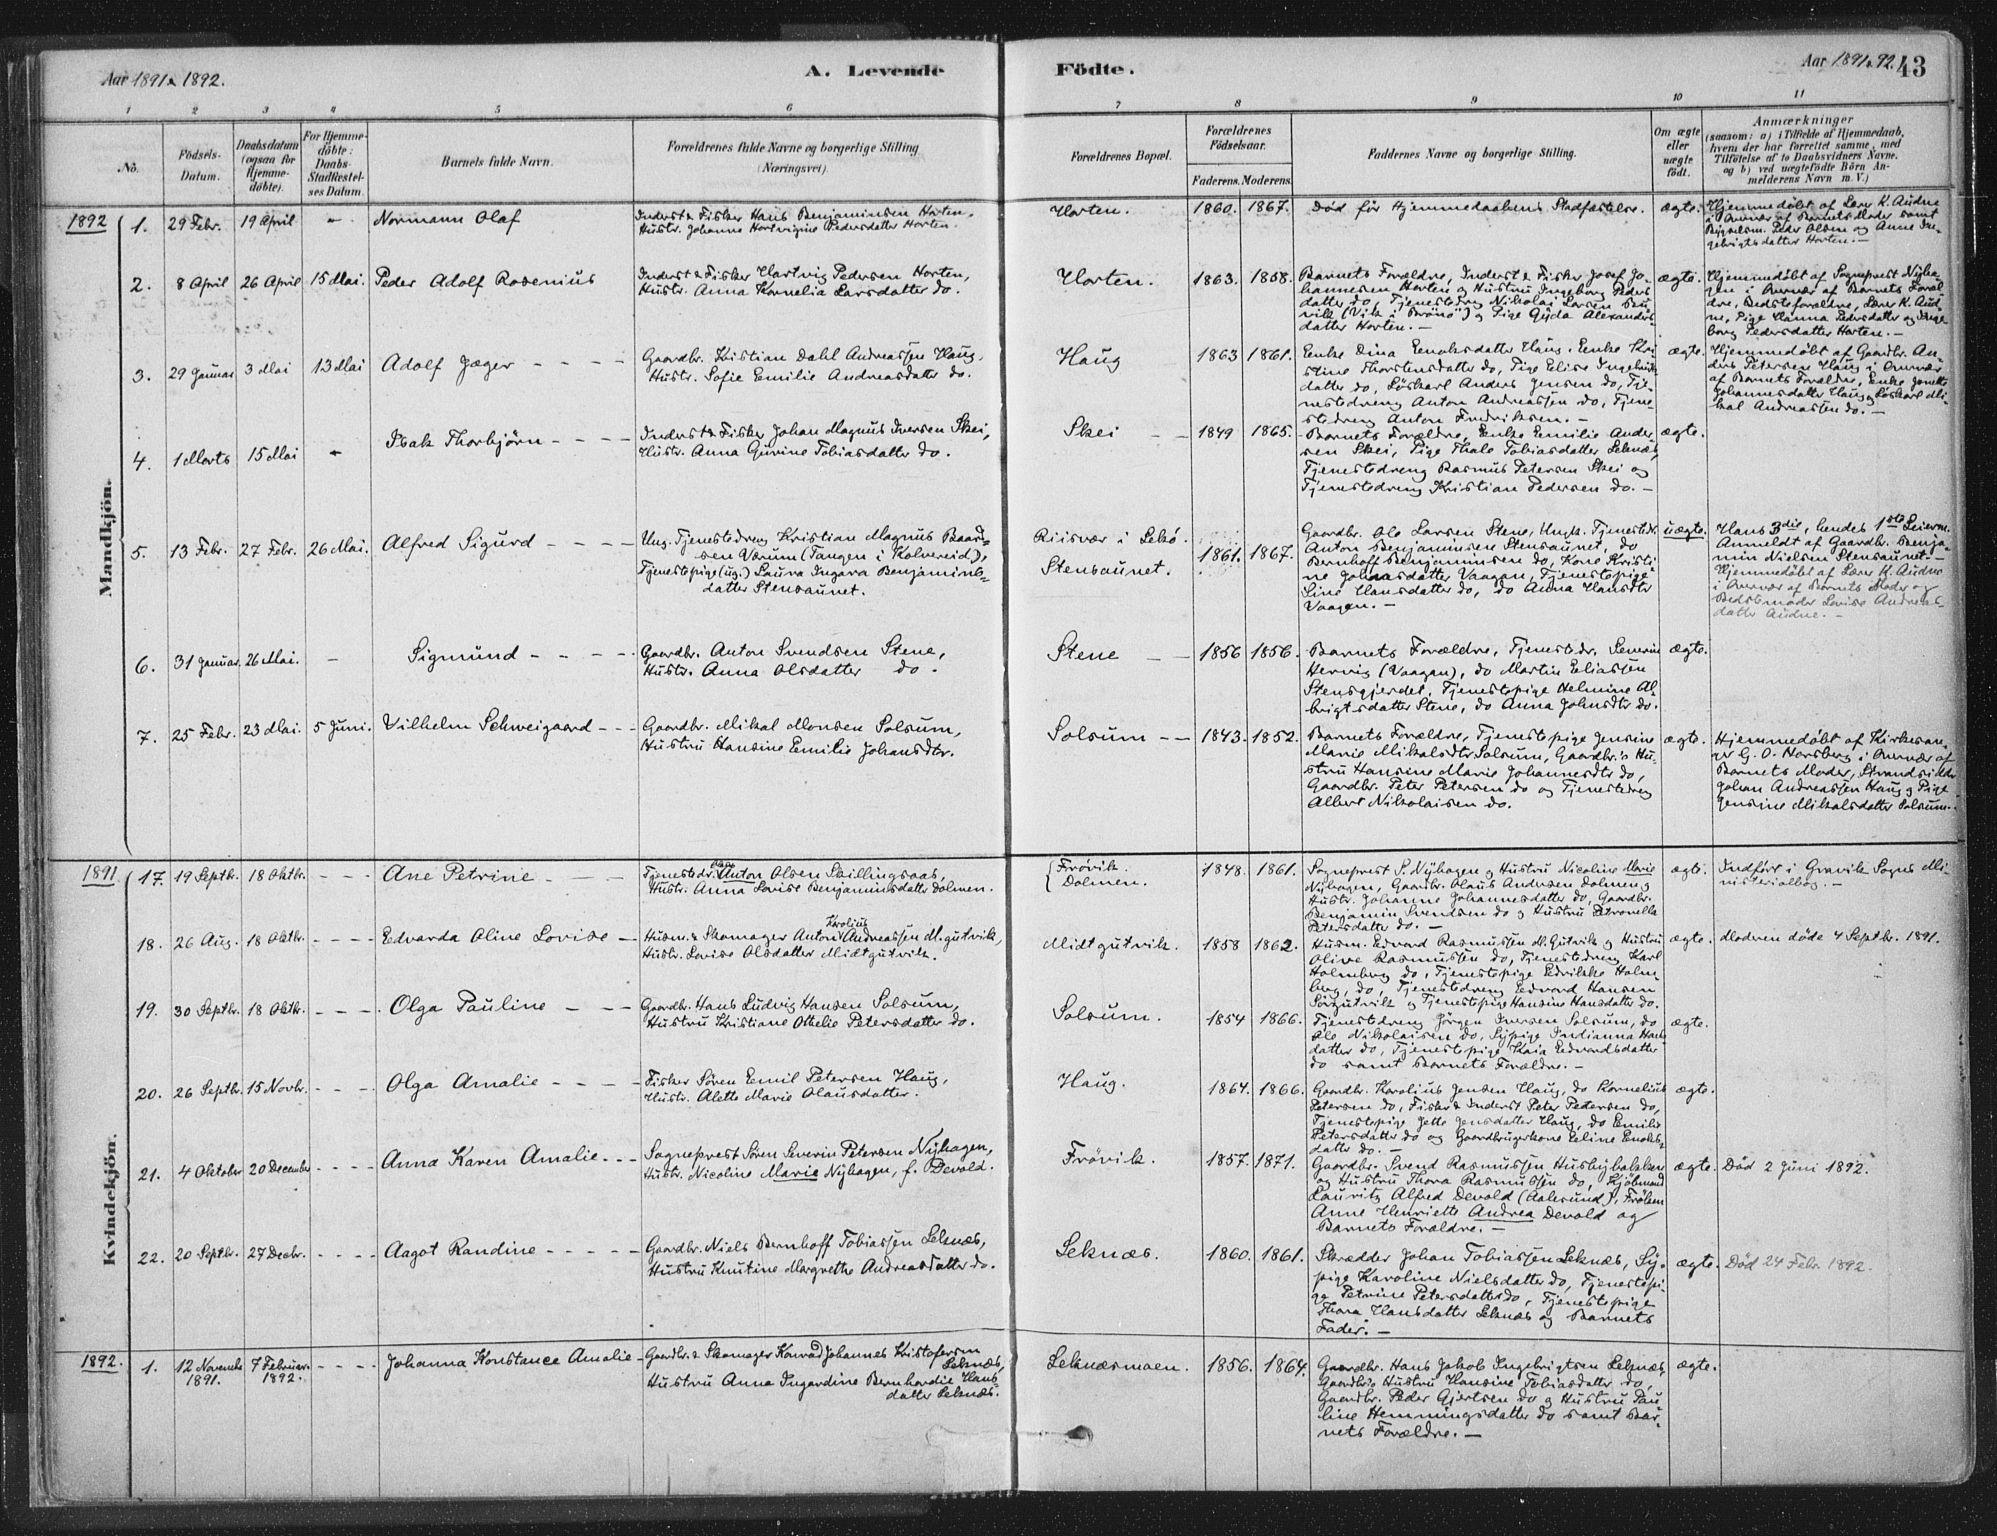 Aar 1891 & 1892.
A. Levende Födte.
Aar 1891 & 92. 43
1 2 3 4 5 6 7 8 9 10 11
No.
Födsels-Datum.
Daabsdatum (ogsaa for Hjemmedöbte).
For Hjemmedöbte: Daabs-Stadfæstelses Datum.
Barnets fulde Navn.
Forældrenes fulde Navne og borgerlige Stilling (Næringsvei).
Forældrenes Bopæl.
Forældrenes Födselsaar.
Faderens. Moderens.
Faddernes Navne og borgerlige Stilling.
Om ægte eller uægte födt.
Anmærkninger (saasom: a) i Tilfælde af Hjemmedaab, hvem der har forrettet samme, med Tilföielse af to Daabsvidners Navne, og b) ved uægtefödte Börn Anmelderens Navn m. V.)
Mandkjön.
1892
1. 29 Febr. 19 April - Normann Olaf
Inderst & Fisker Hans Benjaminsen Horten,
Hustr. Johanne Hartvigine Pedersdatter Horten.
Horten. 1860. 1867.
Død før Hjemmedaabens Stadfæstelse. ægte.
Hjemmedøbt af Lærer K. Audne
i Overvær af Barnets Moder samt
Bygselm. Peder Olsen og Anne In-
gebrigtsdatter Horten. —
2. 8 April 26 April 15 Mai. Peder Adolf Rosenius
Inderst & Fisker Hartvig Pedersen Horten,
Hustr. Anna Kornelia Larsdatter do.
Horten. 1863. 1858.
Barnets Forældre, Inderst & Fisker Josef Jo-
hannesen Horten og Hustru Ingeborg Peders
datter do, Tjenestedreng Nikolai Larsen Sau-
vik (Vik i Brønø) og Pige Gyda Alexanders
datter Horten. —
ægte.
Hjemmedøbt af Sogneprest Nyha-
gen i Overvær af Barnets Foræl-
dre, Bedsteforældre, Lærer K. Aud-
ne, Pige Hanna Pedersdatter og Inge
borg Pedersdatter Horten. —
3. 29 Januar 3 Mai 13 Mai Adolf Jæger - - - -
Gaardbr. Kristian Dahl Andreassen Haug.
Hustr. Sofie Emilie Andreasdatter do.
Haug 1863 1861.
Enke Dina Enoksdatter Haug, Enke Kri
stine Thorstensdatter do, Pige Elise Ingebrigts
datter do, Løskarl Anders Jensen do, Tje-
nestedreng Anton Andreassen do, Tjene-
stedreng Anton Fredriksen. —
ægte.
Hjemmedøbt af Gaardbr. An-
ders Petersen Haug i Overvær
af Barnets Forældre, Enke Jonette
Johannesdatter Haug og Løskarl Mi-
kal Andreassen do. —
4. 1 Marts 15 Mai - Isak Thorbjörn - - - -
Inderst & Fisker Johan Magnus Iversen Skei,
Hustr. Anna Gurine Tobiasdatter do.
Skei - - 1849 1865.
Barnets Forældre, Enke Emilie Ander-
sen Skei, Pige Thale Tobiasdatter Leknæs,
Tjenestedreng Rasmus Petersen Skei og
Tjenestedreng Kristian Pedersen do. —
ægte.
5. 13 Febr. 27 Febr. 26 Mai. Alfred Sigurd - - - -
Ung. Tjenestedreng Kristian Magnus Baard-
sen Værum (Tangen i Kolvereid),
Tjenestepige (ug.) Laura Ingara Benjamins-
datter Stensaunet.
Riisvær i Lekø.
Stensaunet. 1861. 1867.
Gaardbr. Ole Larsen Stene, Ungk. Tjenestedr.
Anton Benjaminsen Stensaunet, do
Bernhoff Benjaminsen do, Kone Kristi-
ne Johansdatter Vaagan, Tjenestepige
Line Hansdatter do, do Anna Hansdtr
Vaagen. —
uægte.
Hans 3die, hendes 1ste Leierm.
Anmeldt af Gaardbr. Benja-
min Nielsen Stensaunet. —
Hjemmedøbt af Lærer K. Audne
i Overvær af Barnets Moder og
Bedstemoder Lovise Andreas-
datter Audne. —
6. 31 Januar. 26 Mai. - Sigmund - - - -
Gaardbr. Anton Svendsen Stene,
Hustr. Anna Olsdatter do.
Stene - - 1856 1856.
Barnets Forældre, Tjenestedr. Severin
Hervig (Vaagan), do Martin Eliassen
Stensgjerdet, Tjenestepige Helmine Al-
brigtsdatter Stene, do Anna Johnsdtr do.
ægte.
7. 25 Febr. 23 Mai. 5 Juni. Vilhelm Schweigaard - - -
Gaardbr. Mikal Monsen Solsum,
Hustru Hansine Emilie Johansdtr.
Solsum - - 1843. 1852.
Barnets Forældre, Tjenestepige Jensine
Marie Mikalsdtr Solsum, Gaardbr.s Hu-
stru Hansine Marie Johannesdtr do,
Gaardbr. Peter Petersen do og Tjenestedreng
Albert Nikolaisen do.
ægte.
Hjemmedøbt af Kirkesan-
ger G. O. Horsberg i Overvær af
Barnets Moder, Strandsidder
Johan Andreassen Haug og Pige
Jensine Mikalsdatter Solsum.
Kvindekjön.
1891
17. 19 Septbr. 18 Oktbr. - - - Ane Petrine - - -
Tjenestedr. Anton Olsen Skillingsaas,
Hustr. Anna Lovise Benjaminsdatter Dolmen.
Frøvik.
Dolmen. 1848. 1861.
Sogneprest S. Nyhagen og Hustru Nicoline Marie
Nyhagen, Gaardbr. Olaus Andersen Dolmen og
Hustr. Johanne Johannesdatter do, Gaardbr.
Benjamin Svendsen do og Hustru Petronelle
Petersdatter do. —
ægte.
Indført i Gravik Sogns Mi-
nisterialbog. —
18. 26 Aug. 18 Oktbr. - - - - Edvarda Oline Lovise -
Karolius
Husm. & Skomager Anton Andreassen M. gutvik,
Hustr. Lovise Olsdatter Midtgutvik.
Midtgutvik. 1858 1862.
Husm. Edvard Rasmussen M. Gutvik og Hustru
Olive Rasmussen do, Tjenestedreng Karl
Holmberg do, Tjenestepige Edrikke Holm-
berg, do, Tjenestedreng Edvard Hansen
Sörgutvik og Tjenestepige Hansine Hansdatter do.
ægte.
Moderen døde 4 Septbr. 1891.
19. 30 Septbr. 18 Oktbr. - - - Olga Pauline - - -
Gaardbr. Hans Ludvig Hansen Solsum,
Hustru Kristiane Othelie Petersdatter do.
Solsum. 1854 1866.
Tjenestedreng Jörgen Iversen Solsum, do
Ole Nikolaisen do, Sypige Indianna Hans
datter do, Tjenestepige Kaia Edvardsdatter
do samt Barnets Forældre. —
ægte.
20. 26 Septbr. 15 Novbr. - - - - Olga Amalie - - - -
Fisker Søren Emil Petersen Haug,
Hustr. Alette Marie Olausdatter.
Haug. 1864. 1866.
Gaardbr. Karolius Jensen Haug, do Kornelius
Petersen do, Fisker & Inderst Peter Pedersen do,
Tjenestepige Jette Jensdatter Haug, do Emilie
Petersdatter do og Gaardbrugerkone Eeline Enoks-
datter do. —
ægte.
21. 4 Oktober 20 December - - - - Anna Karen Amalie. - -
Sogneprest Sören Severin Petersen Nyhagen,
Hustr. Nicoline Marie Nyhagen, f. Devold.
Frövik. 1857. 1871.
Gaardbr. Svend Rasmussen Husbybakken
og Hustru Thora Rasmussen do, Kjøbmand
Lauritz Alfred Devold (Aalesund), Frøken
Anne Henriette Andrea Devold og
Barnets Forældre. —
ægte.
Død 2 Juni 1892.
22. 20 Septbr. 27 Decbr. - - - - Aagot Randine - - - - -
Gaardbr. Niels Bernhoff Tobiassen Leknæs,
Hustru Knutine Margrethe Andreasdatter do.
Leknæs. 1860. 1861.
Skrædder Johan Tobiassen Leknæs, Sy-
pige Karoline Nielsdatter do, Tjenestepi-
ge Petrine Petersdatter do, Tjenestepige
Thora Hansdatter Leknæs og Barnets
Fader. —
ægte.
Død 24 Febr. 1892.
1892.
1. 12 Novembr 1891. 7 Februar. 1892. - - - - Johanna Konstance Amalie
Gaardbr. & Skomager Konrad Johannes Kristofersen
Leknæs,
Hustru Anna Ingardine Bernhardie Hans-
datter Leknæs.
Leknæsmoen. 1856. 1864.
Gaardbr. Hans Jakob Ingebrigtsen Leknæs,
Gaardbr.s Hustru Hansine Tobiasdatter do,
Gaardbr. Peder Gjertsen do og Hustru Pau-
line Hemmingsdatter do samt Bar-
nets Forældre. —
ægte.